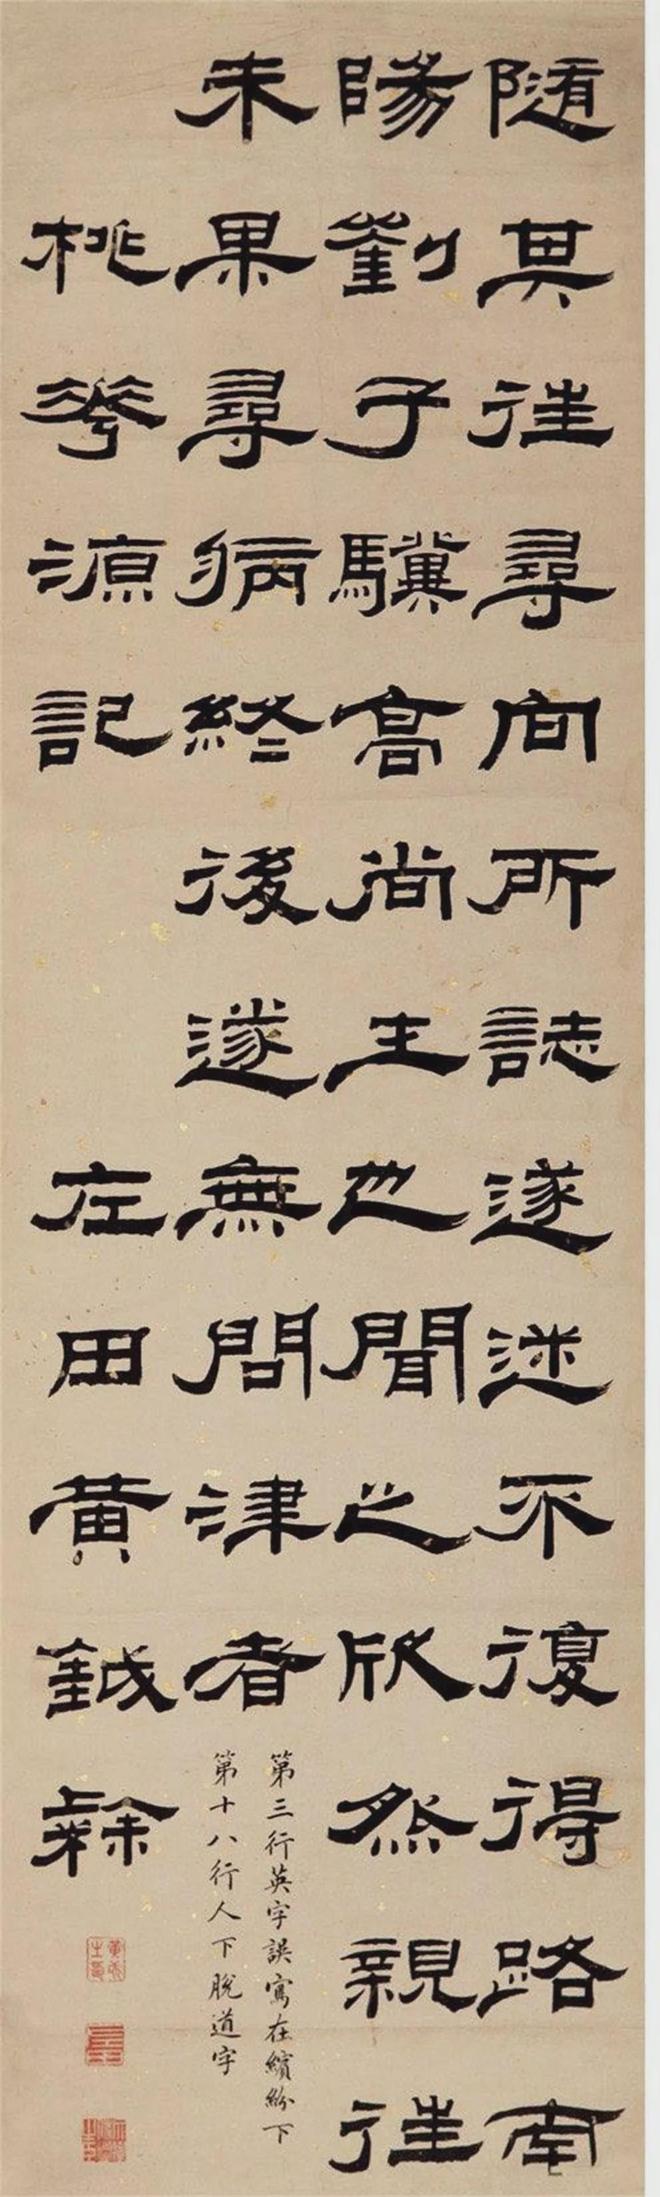 隨其往尋向所誌遂迷不復得路南
陽劉子驥高尚士也聞之欣然親往
未果尋病終後遂無問津者
第三行英字誤寫在繽紛下
第十八行人下脫道字
桃華源記 左田黃鉞隸